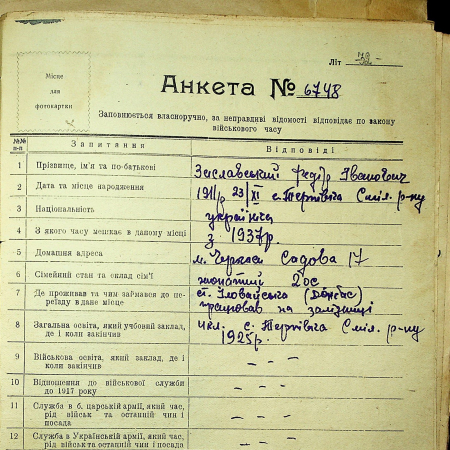 Літ 32 -
Місце
для
фотокартки
Анкета № 6748
Заповнюється власноручно, за неправдиві відомості відповідає по закону
військового часу
№№
п-п
Запитання
Відповіді
1 Прізвище, ім'я та по-батькові
Заславський Федір Іванович
2 Дата та місце народження
1911р 23/XI с. Тернівка Сміл. р-ну
3 Національність
українець
4 З якого часу мешкає в даному місці
з 1937р.
5 Домашня адреса
м. Черкаси Садова 17
6 Сімейний стан та склад сім'ї
жонатий 2ос
7 Де проживав та чим займався до пе-
реїзду в дане місце
ст. Іловайська (Донбас)
працював на залізниці
8 Загальна освіта, який учбовий заклад,
де і коли закінчив
4кл. с. Тернівка Сміл. р-ну
1925р.
9 Військова освіта, який заклад, де і
коли закінчив
– –
10 Відношення до військової служби
до 1917 року
– –
11 Служба в б. царській армії, який час,
рід військ та останній чин і
посада
– –
12 Служба в Українській армії, який час,
рід військ та останній чин і посада
– –